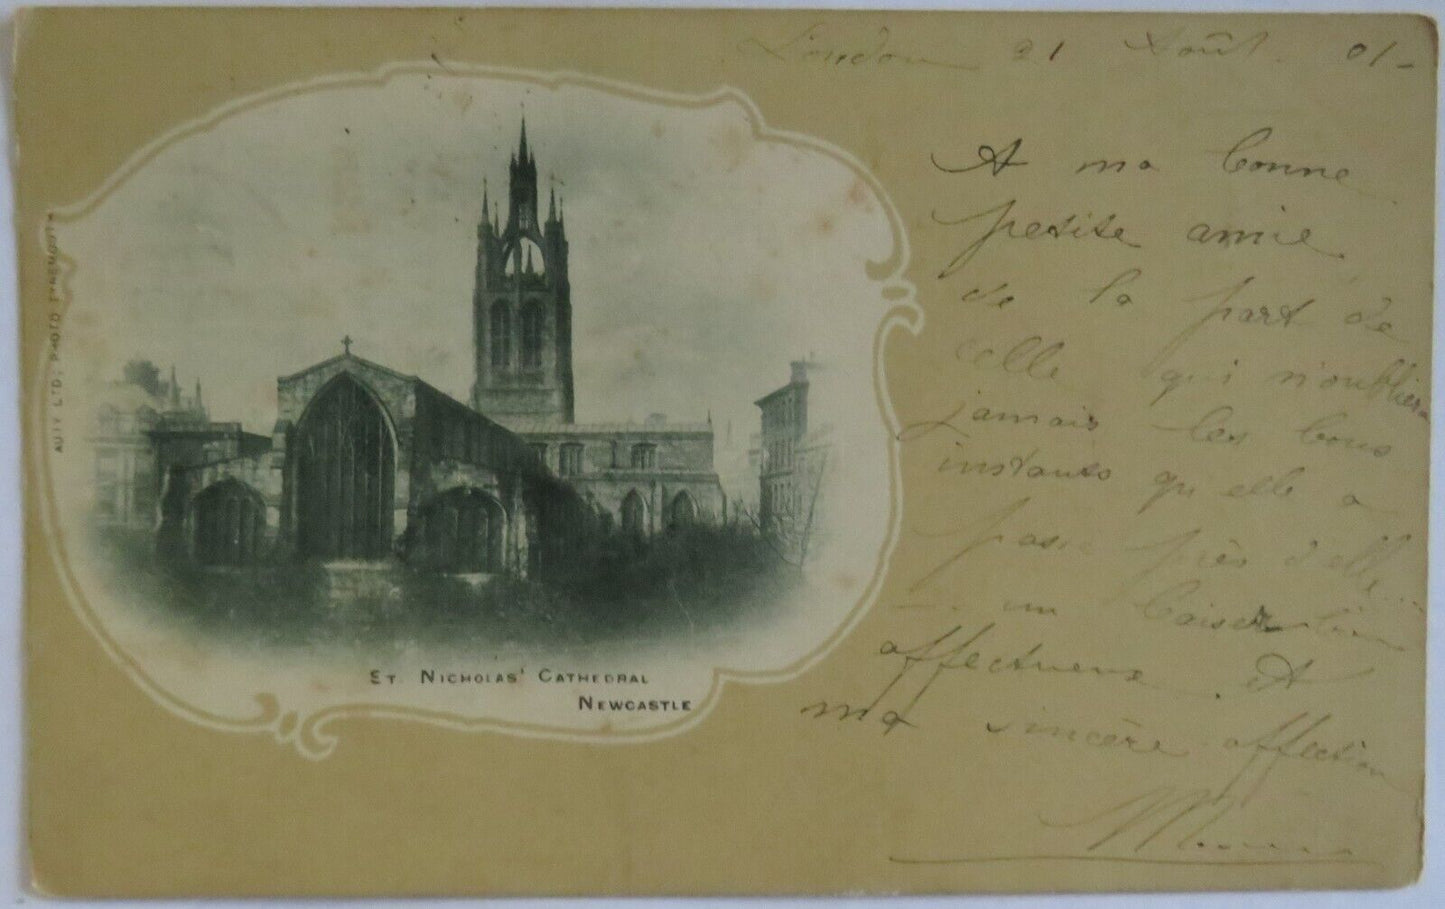 London 21 Août. 01-
A ma bonne
petite amie
de la part de
celle qui n'oubliera
jamais les bons
instants qu'elle a
passé près d'elle...
un baiser
affectueux. Et
ma sincère affection
AUTY LTD; PHOTO TYNEMOUTH
ST. NICHOLAS' CATHEDRAL
NEWCASTLE